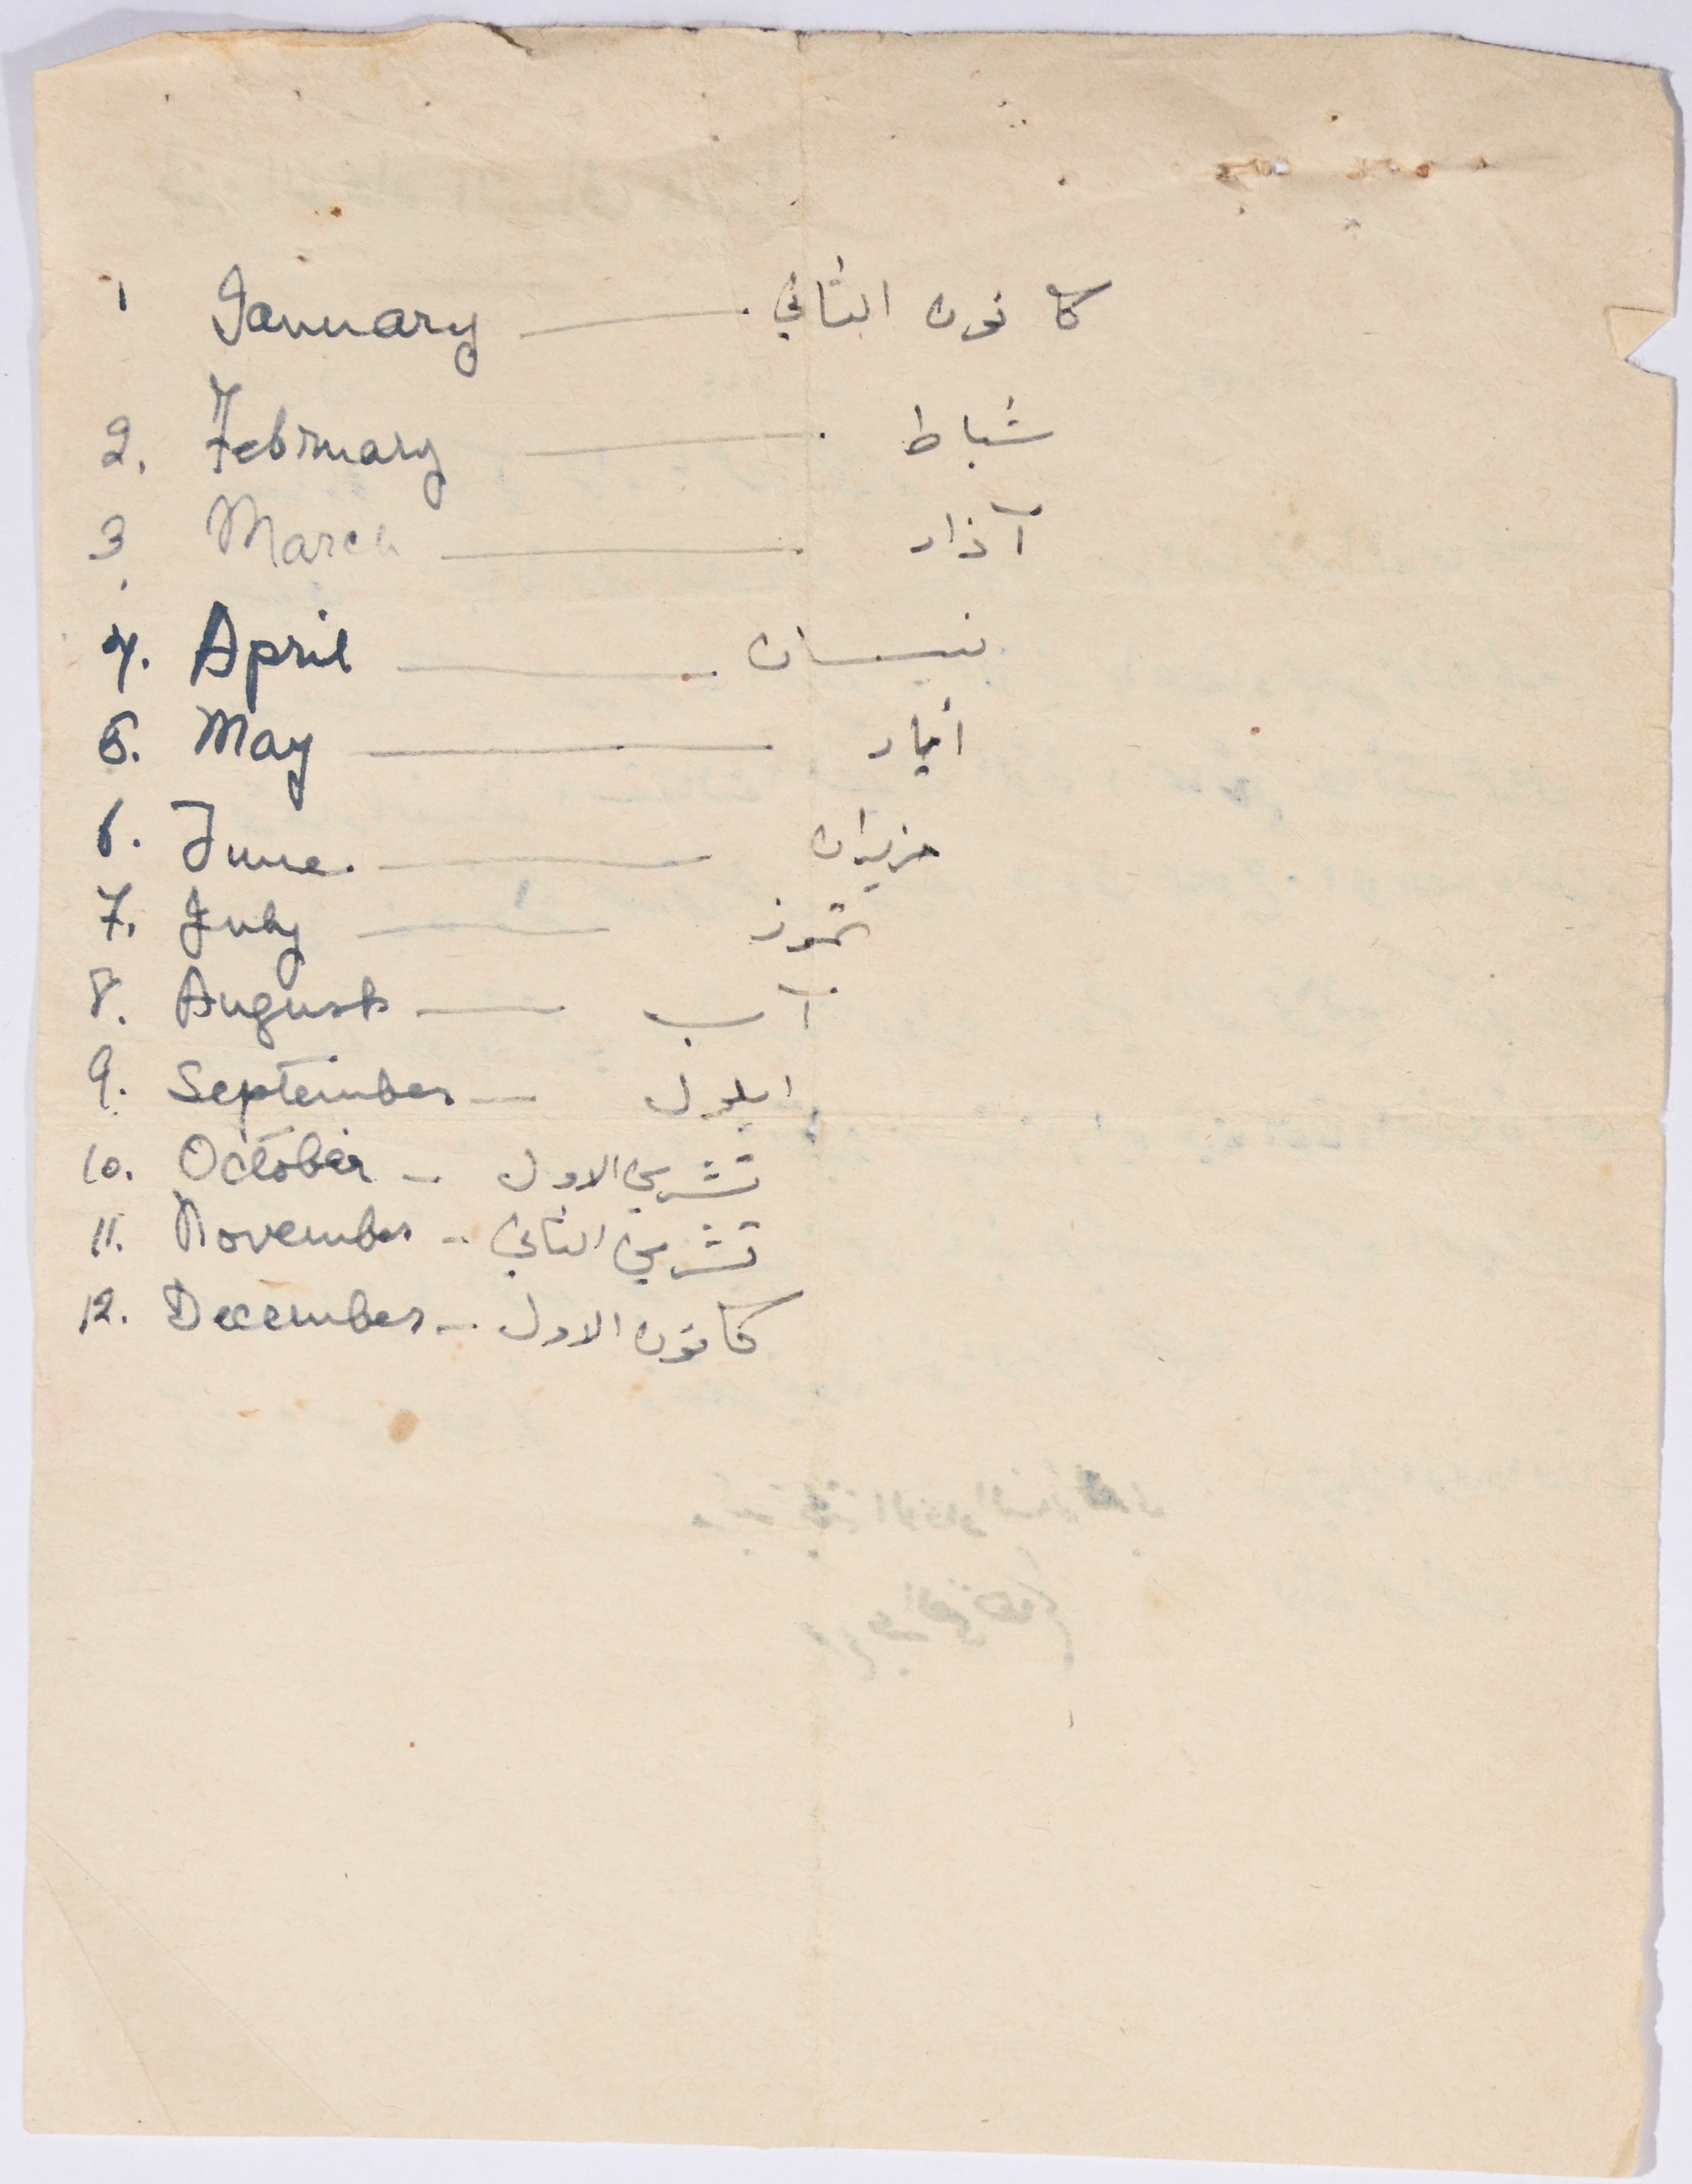 1 January — كانون الثاني
2. February — شباط
3. March — آذار
4. April — نيسان
5. May — أيار
6. June. — حزيران
7. July — تموز
8. August — آب
9. September — ايلول
10. October - تشرين الاول
11. November - تشرين الثاني
12. December - كانون الاول